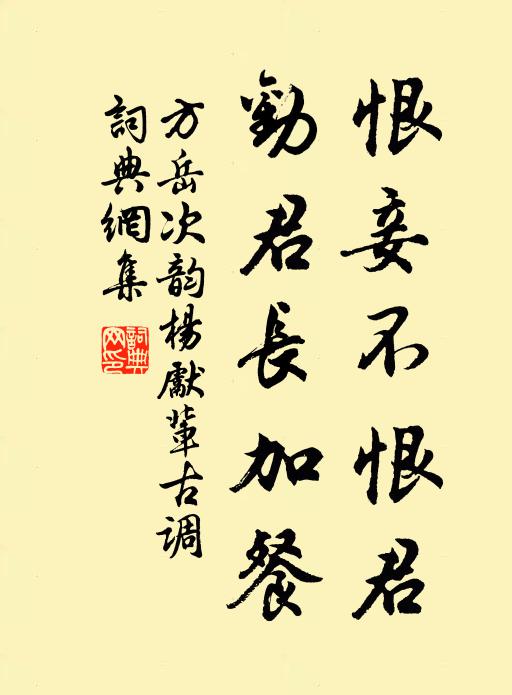 恨妾不恨君
勸君長加餐
方岳次韵楊獻輩古调
詞典網集
詞典网印